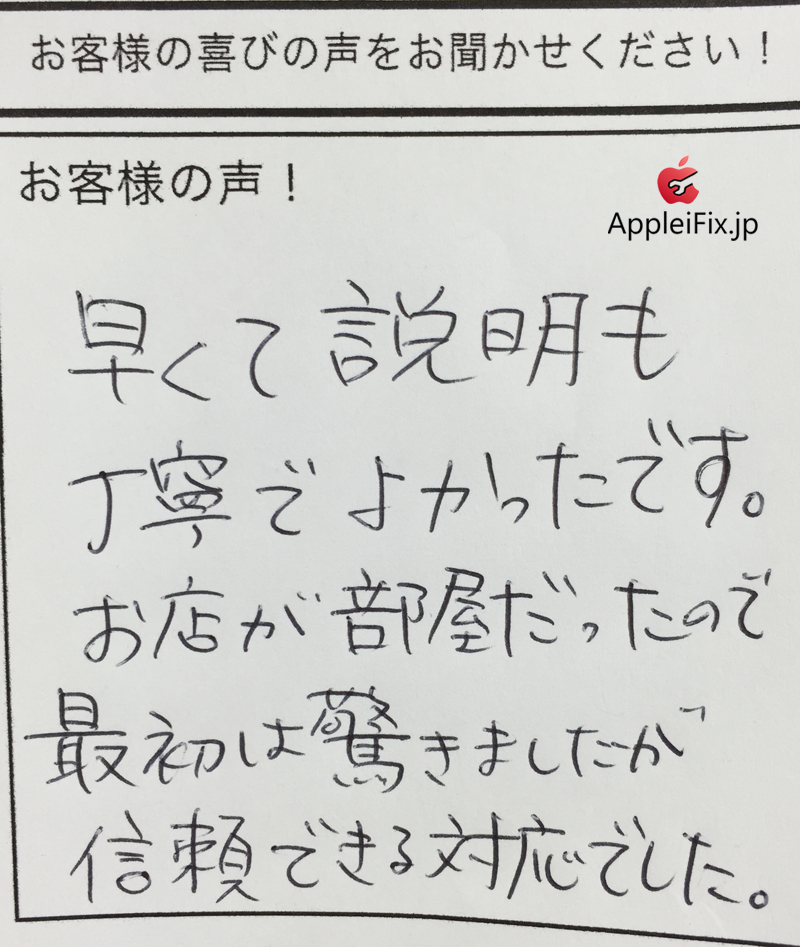 お客様の喜びの声をお聞かせください！
お客様の声！
AppleiFix.jp
早くて説明も
丁寧でよかったです。
お店が部屋だったので
最初は驚きましたが
信頼できる対応でした。